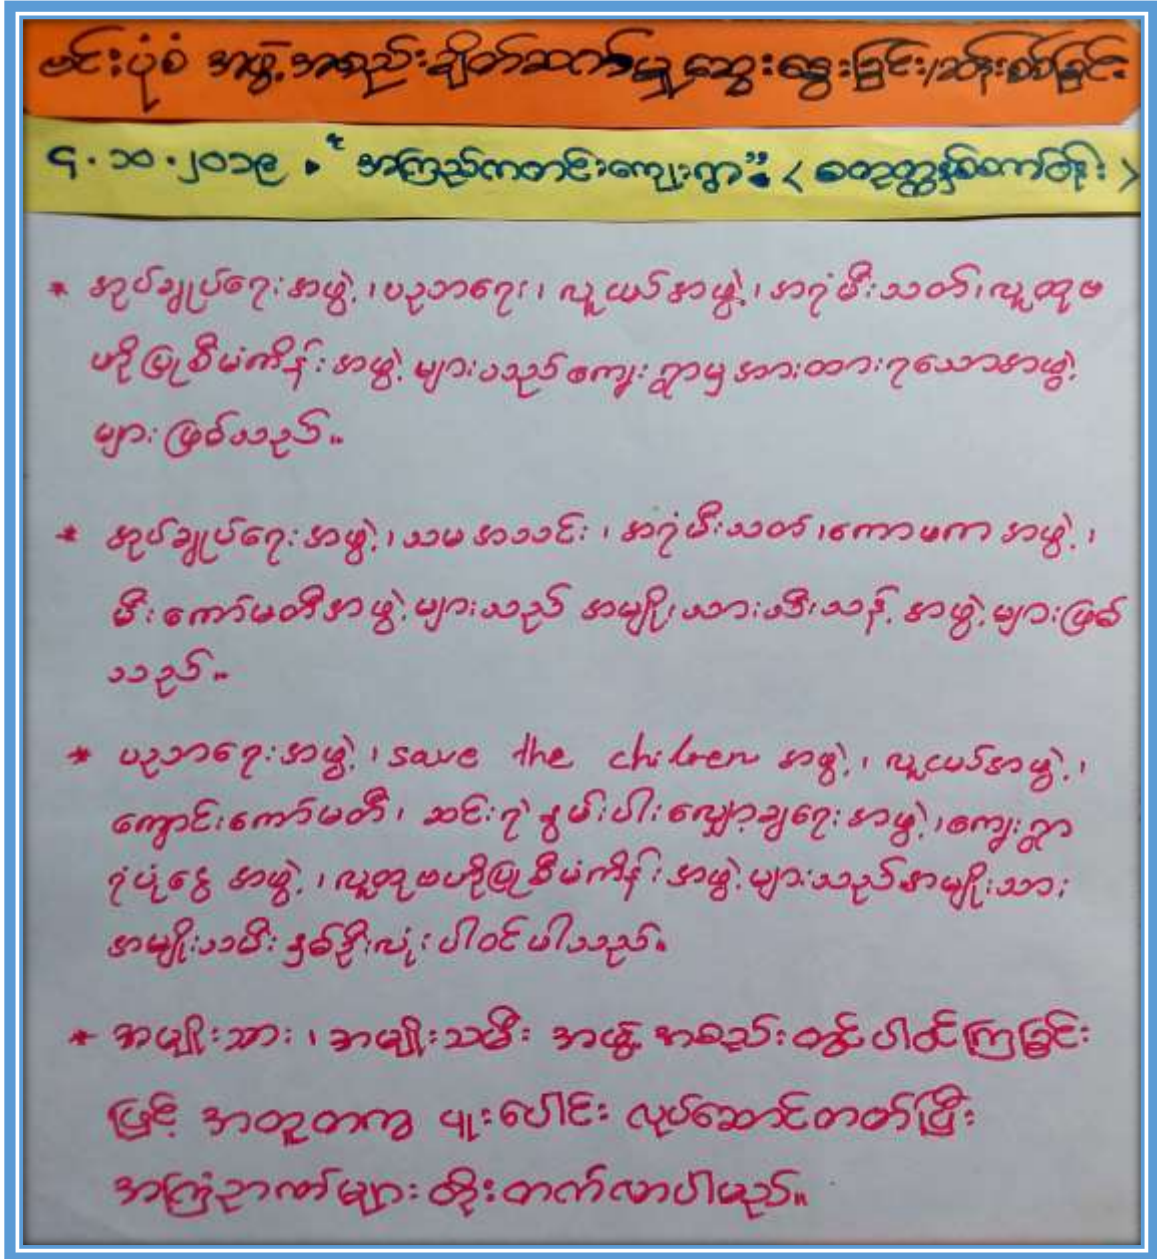 ဗင်းပုံစံ အဖွဲ့အစည်းချိတ်ဆက်မှု ဆွေးနွေးခြင်း/ဆန်းစစ်ခြင်း
၄.၁၀.၂၀၁၉ "အကြည်ကတင်းကျေးရွာ" < စတုတ္ထနှစ်စကာဝိုင်း >
* အုပ်ချုပ်ရေးအဖွဲ့၊ ပညာရေး၊ လူငယ်အဖွဲ့၊ အရံမီးသတ်၊ လူထုဗ
ဟိုပြုစီမံကိန်းအဖွဲ့များသည် ကျေးရွာမှ အားထားရသောအဖွဲ့
များဖြစ်သည်။
* အုပ်ချုပ်ရေးအဖွဲ့၊ သမအသင်း၊ အရံမီးသတ်၊ ကောမကအဖွဲ့၊
မီးကော်မတီအဖွဲ့များသည် အမျိုးသားသီးသန့်အဖွဲ့များဖြစ်
သည်။
* ပညာရေးအဖွဲ့၊ save the children အဖွဲ့၊ လူငယ်အဖွဲ့၊
ကျောင်းကော်မတီ၊ ဆင်းရဲနွမ်းပါးလျှော့ချရေးအဖွဲ့၊ ကျေးရွာ
ရံပုံငွေအဖွဲ့၊ လူထုဗဟိုပြုစီမံကိန်းအဖွဲ့များသည် အမျိုးသား
အမျိုးသမီး နှစ်ဦးလုံးပါဝင်ပါသည်။
* အမျိုးသား၊ အမျိုးသမီး အဖွဲ့အစည်းတွင်ပါဝင်ကြခြင်း
ဖြင့် အတူတကွ ပူးပေါင်း လုပ်ဆောင်တတ်ပြီး
အကြံဉာဏ်များ တိုးတက်လာပါမည်။